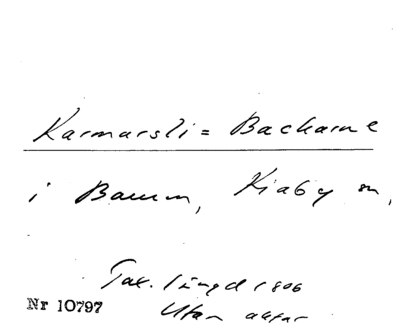 Karmarsli = Backarne
i Baum, Kiaby sn,
Tax. längd 1806
Nr 10797
Utan axlar